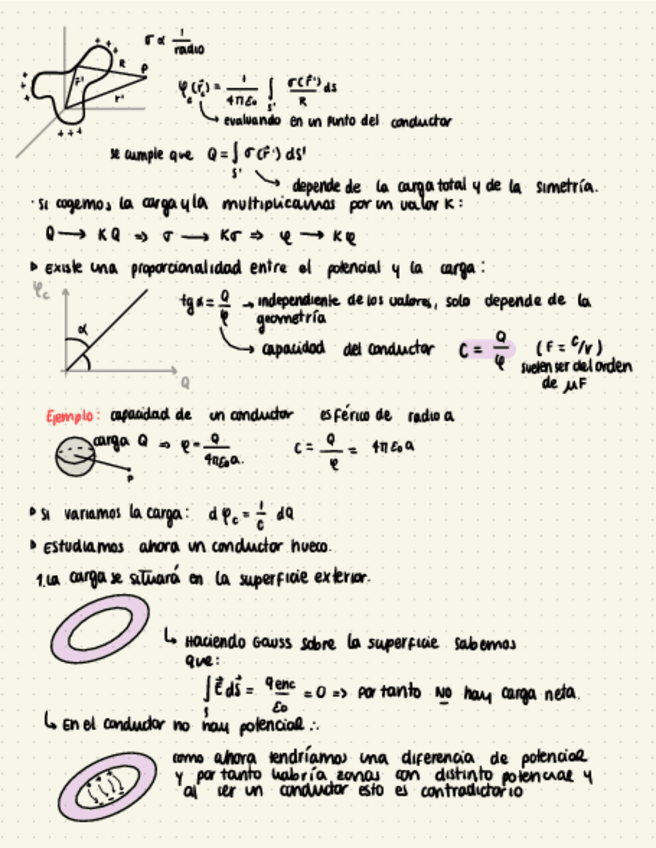 σ ∝ 1/radio
+ + +
R
P
r'
r'
+ + +
φc(r⃗c) = 1/4πε₀ ∫s' σ(r⃗')/R ds
↳ evaluando en un punto del conductor
se cumple que Q = ∫s' σ(r⃗') ds'
↳ depende de la carga total y de la simetría.
· Si cogemos la carga y la multiplicamos por un valor K:
Q → KQ ⇒ σ → Kσ ⇒ φ → Kφ
▸ Existe una proporcionalidad entre el potencial y la carga:
φc
α
Q
tg α = Q/φ → independiente de los valores, solo depende de la
geometría
↳ capacidad del conductor C = Q/φ (F = C/V)
suelen ser del orden
de μF
Ejemplo: capacidad de un conductor esférico de radio a
carga Q ⇒ φ = Q/4πε₀a. C = Q/φ = 4πε₀a
P
▸ Si variamos la carga: dφc = 1/C dQ
▸ Estudiamos ahora un conductor hueco.
1. La carga se situará en la superficie exterior.
↳ Haciendo Gauss sobre la superficie sabemos
que:
∫s E⃗ ds⃗ = qenc/ε₀ = 0 => por tanto NO hay carga neta.
↳ En el conductor no hay potencial ∴
como ahora tendríamos una diferencia de potencial
y por tanto habría zonas con distinto potencial y
al ser un conductor esto es contradictorio